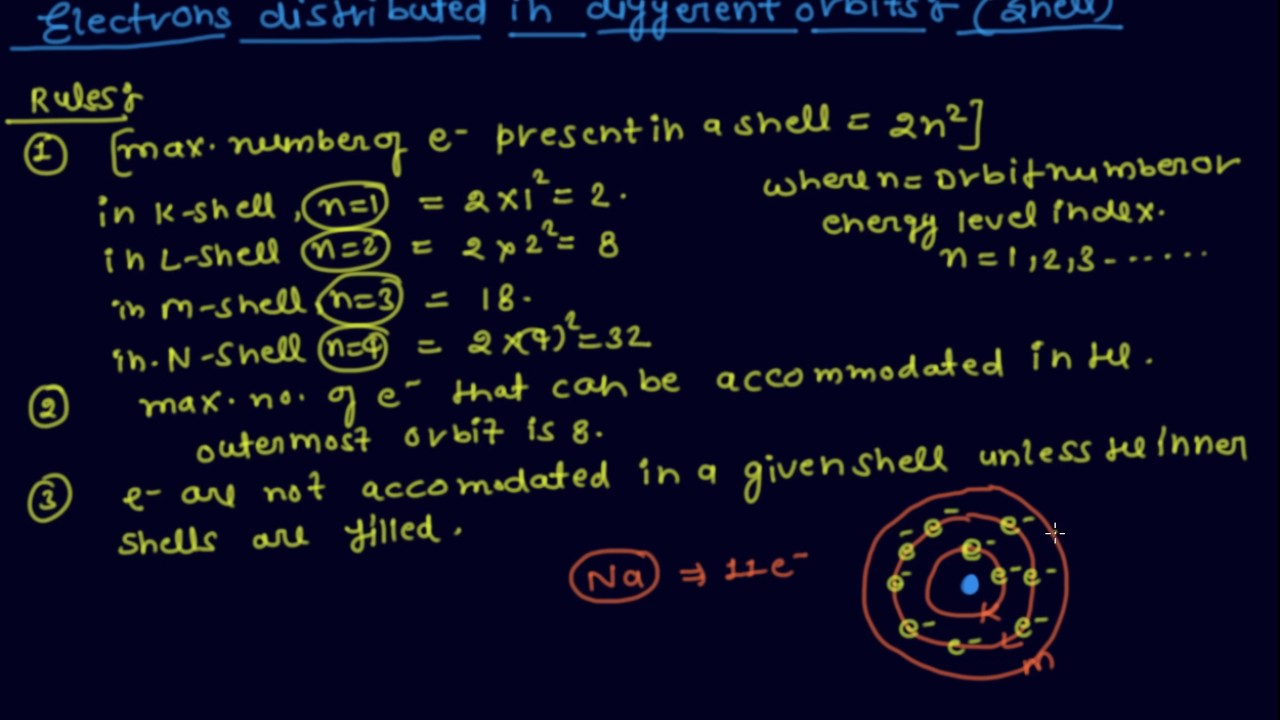 Electrons distributed in different orbits (shell)
Rules
① [max. number of e- present in a shell = 2n²]
where n = orbit number or
energy level index.
n = 1, 2, 3 - - . . . . .
in K-shell, n=1 = 2×1² = 2.
in L-shell n=2 = 2×2² = 8
in M-shell, n=3 = 18.
in. N-shell n=4 = 2×(4)² = 32
② max. no. of e- that can be accommodated in the.
outermost orbit is 8.
③ e- are not accomodated in a given shell unless the inner
shells are filled.
Na ⇒ 11e-
e- e- e- e- e- e- e- e- e- e-
K
L
M